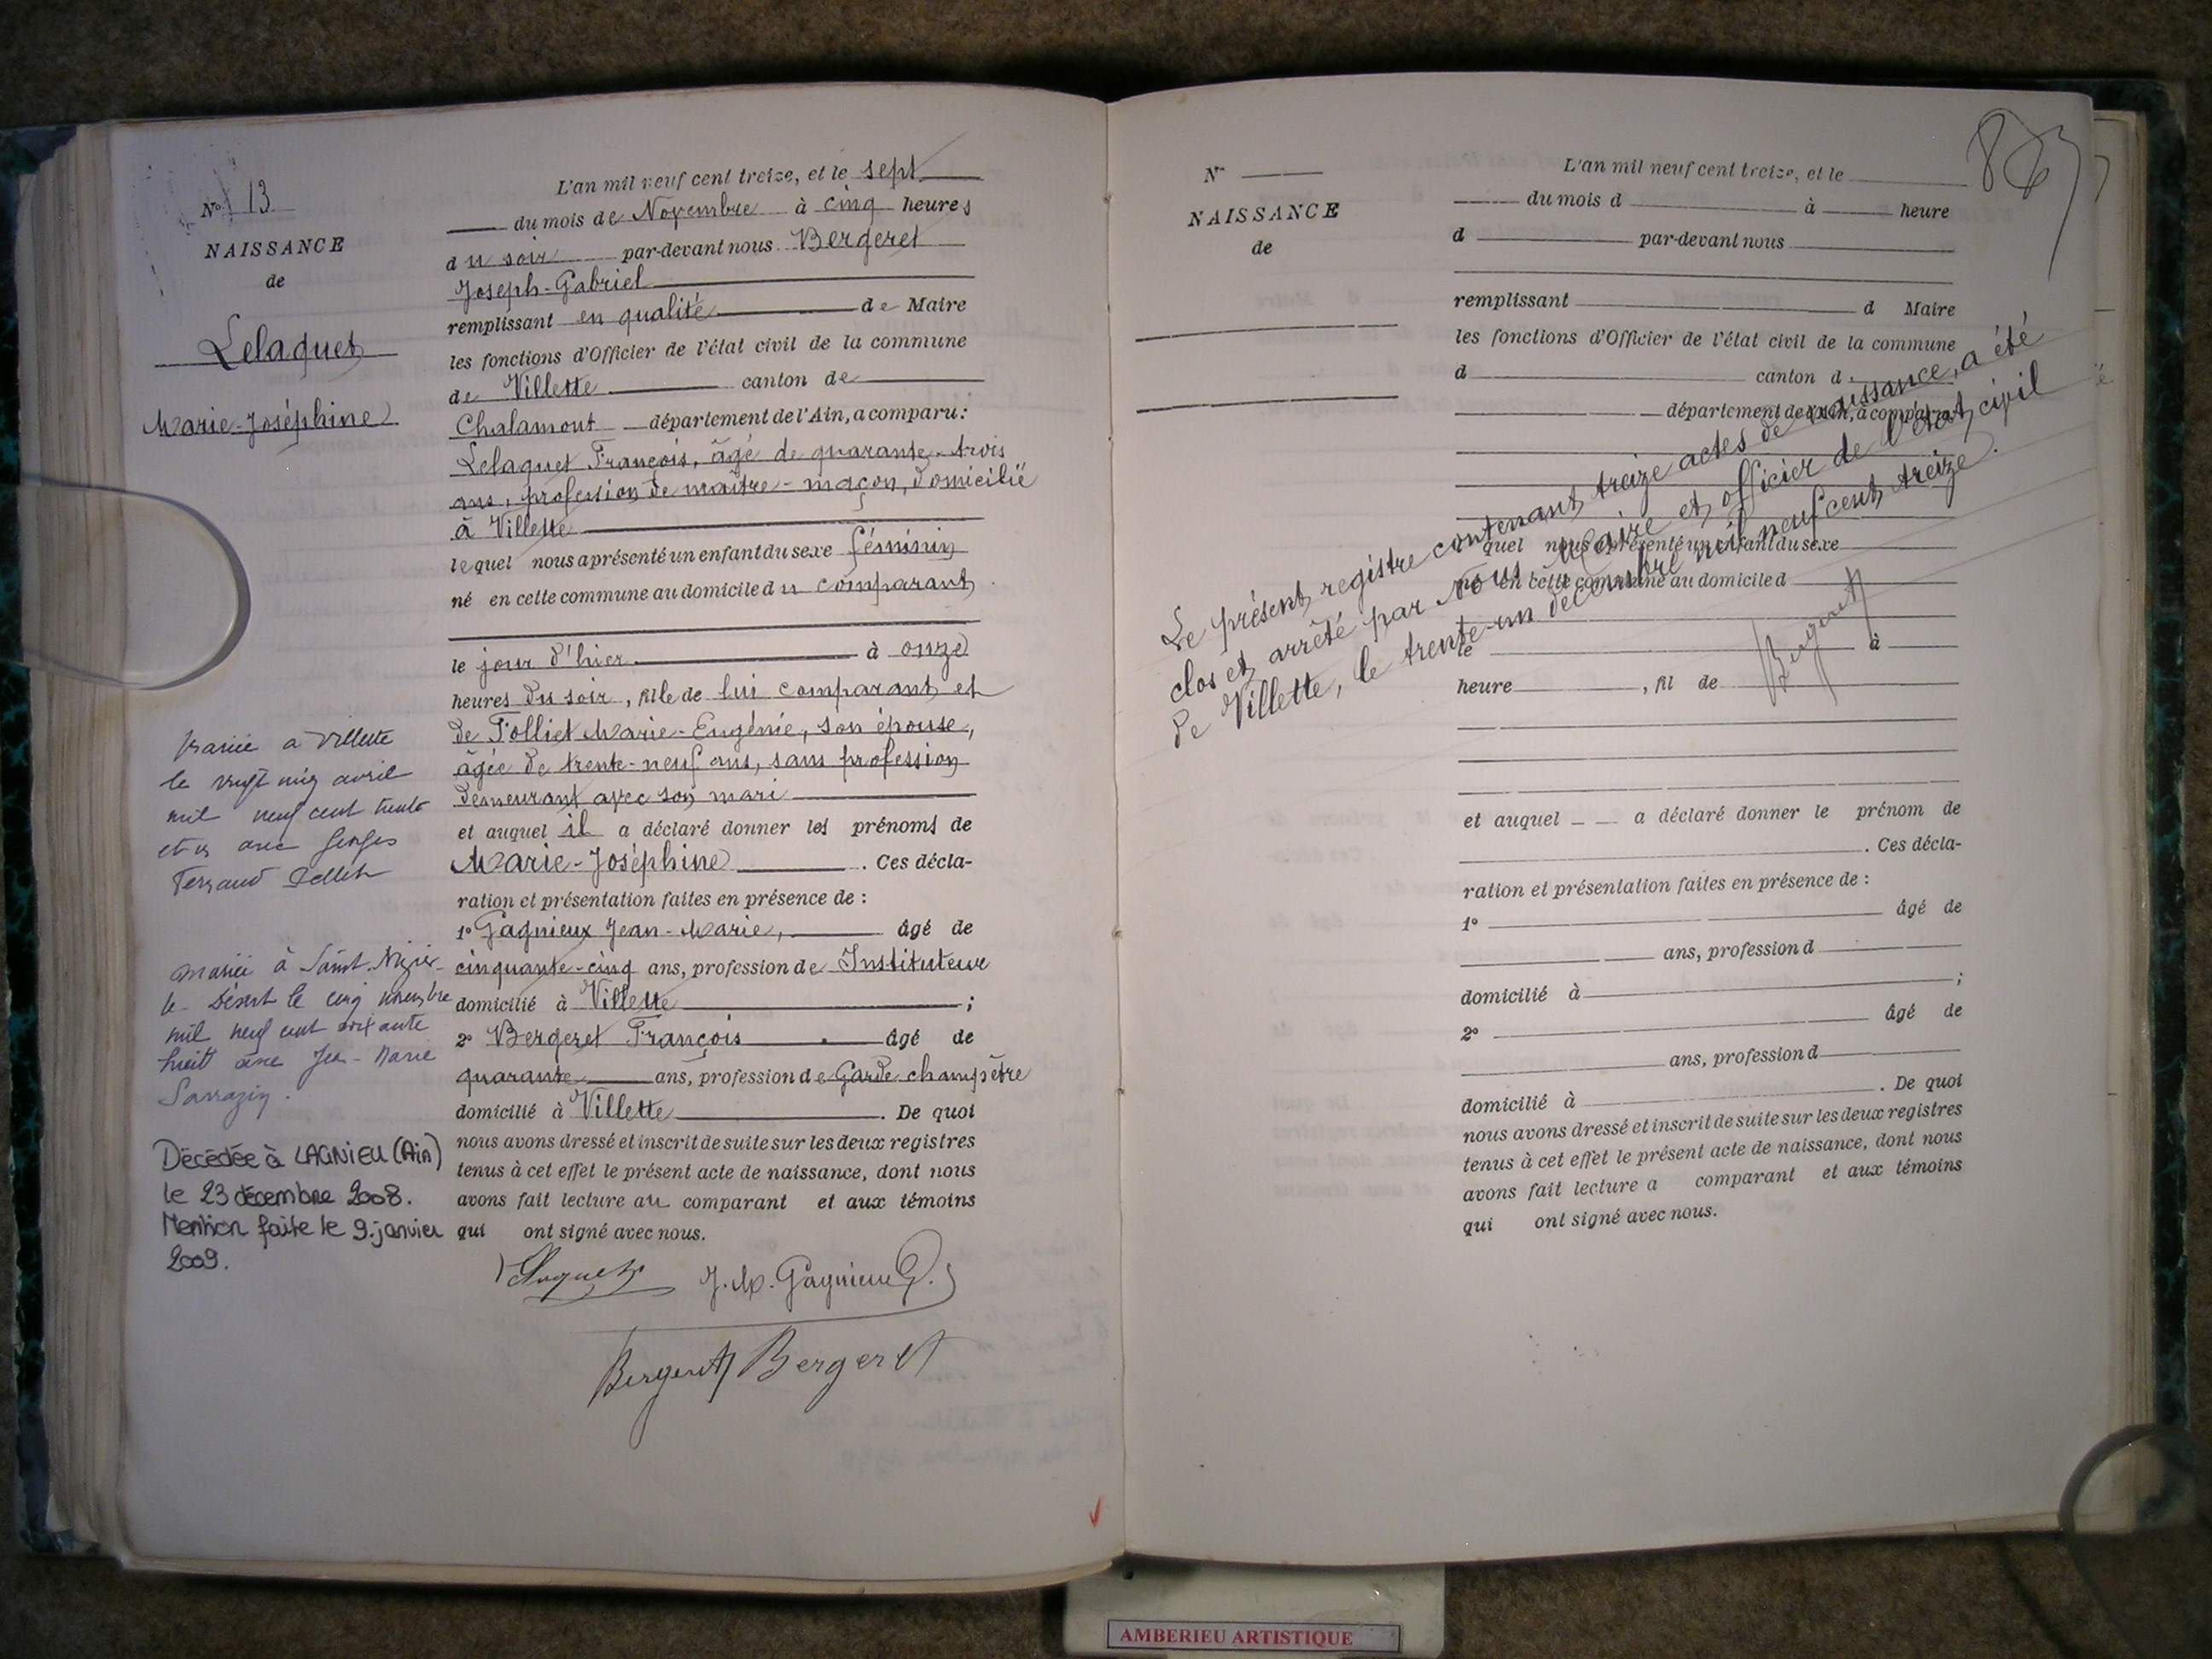 N° 13
NAISSANCE
de
Lelaquet
Marie-Joséphine
L'an mil neuf cent treize, et le sept
du mois de Novembre à cinq heures
du soir par-devant nous Bergeret
Joseph-Gabriel
remplissant en qualité de Maire
les fonctions d'Officier de l'état civil de la commune
de Villette canton de
Chalamont département de l'Ain, a comparu:
Lelaquet François, âgé de quarante-trois
ans, profession de maître-maçon, domicilié
à Villette
lequel nous a présenté un enfant du sexe féminin
né en cette commune au domicile du comparant
le jour d'hier à onze
heures du soir, fille de lui comparant et
de Folliet Marie-Eugénie, son épouse,
âgée de trente-neuf ans, sans profession
demeurant avec son mari
et auquel il a déclaré donner les prénoms de
Marie-Joséphine. Ces décla-
ration et présentation faites en présence de :
1° Gagnieux Jean-Marie, âgé de
cinquante-cinq ans, profession de Instituteur
domicilié à Villette ;
2° Bergeret François âgé de
quarante ans, profession de Garde champêtre
domicilié à Villette. De quoi
nous avons dressé et inscrit de suite sur les deux registres
tenus à cet effet le présent acte de naissance, dont nous
avons fait lecture au comparant et aux témoins
qui ont signé avec nous.
J. M. Gagnieux
Bergeret Bergeret
Mariée à Villette
le vingt avril
mil neuf cent trente
et un avec Georges
Ferrand
Mariée à Saint-Nizier-
le-Désert le cinq novembre
mil neuf cent soixante
huit avec Jean-Marie
Sarrazin.
Décédée à LAGNIEU (Ain)
le 23 décembre 2008.
Mention faite le 9 janvier
2009.
N°
NAISSANCE
de
L'an mil neuf cent treize, et le
du mois d à heure
d par-devant nous
remplissant d Maire
les fonctions d'Officier de l'état civil de la commune
d canton d
département de l'Ain, a comparu:
quel nous a présenté un enfant du sexe
né en cette commune au domicile d
le à
heure , fil de
et auquel a déclaré donner le prénom de
. Ces décla-
ration et présentation faites en présence de :
1° âgé de
ans, profession d
domicilié à ;
2° âgé de
ans, profession d
domicilié à . De quoi
nous avons dressé et inscrit de suite sur les deux registres
tenus à cet effet le présent acte de naissance, dont nous
avons fait lecture a comparant et aux témoins
qui ont signé avec nous.
Le présent registre contenant treize actes de naissance, a été
clos et arrêté par Nous Maire et officier de l'état civil
de Villette, le trente-un décembre mil neuf cent treize.
Bergeret
AMBERIEU ARTISTIQUE